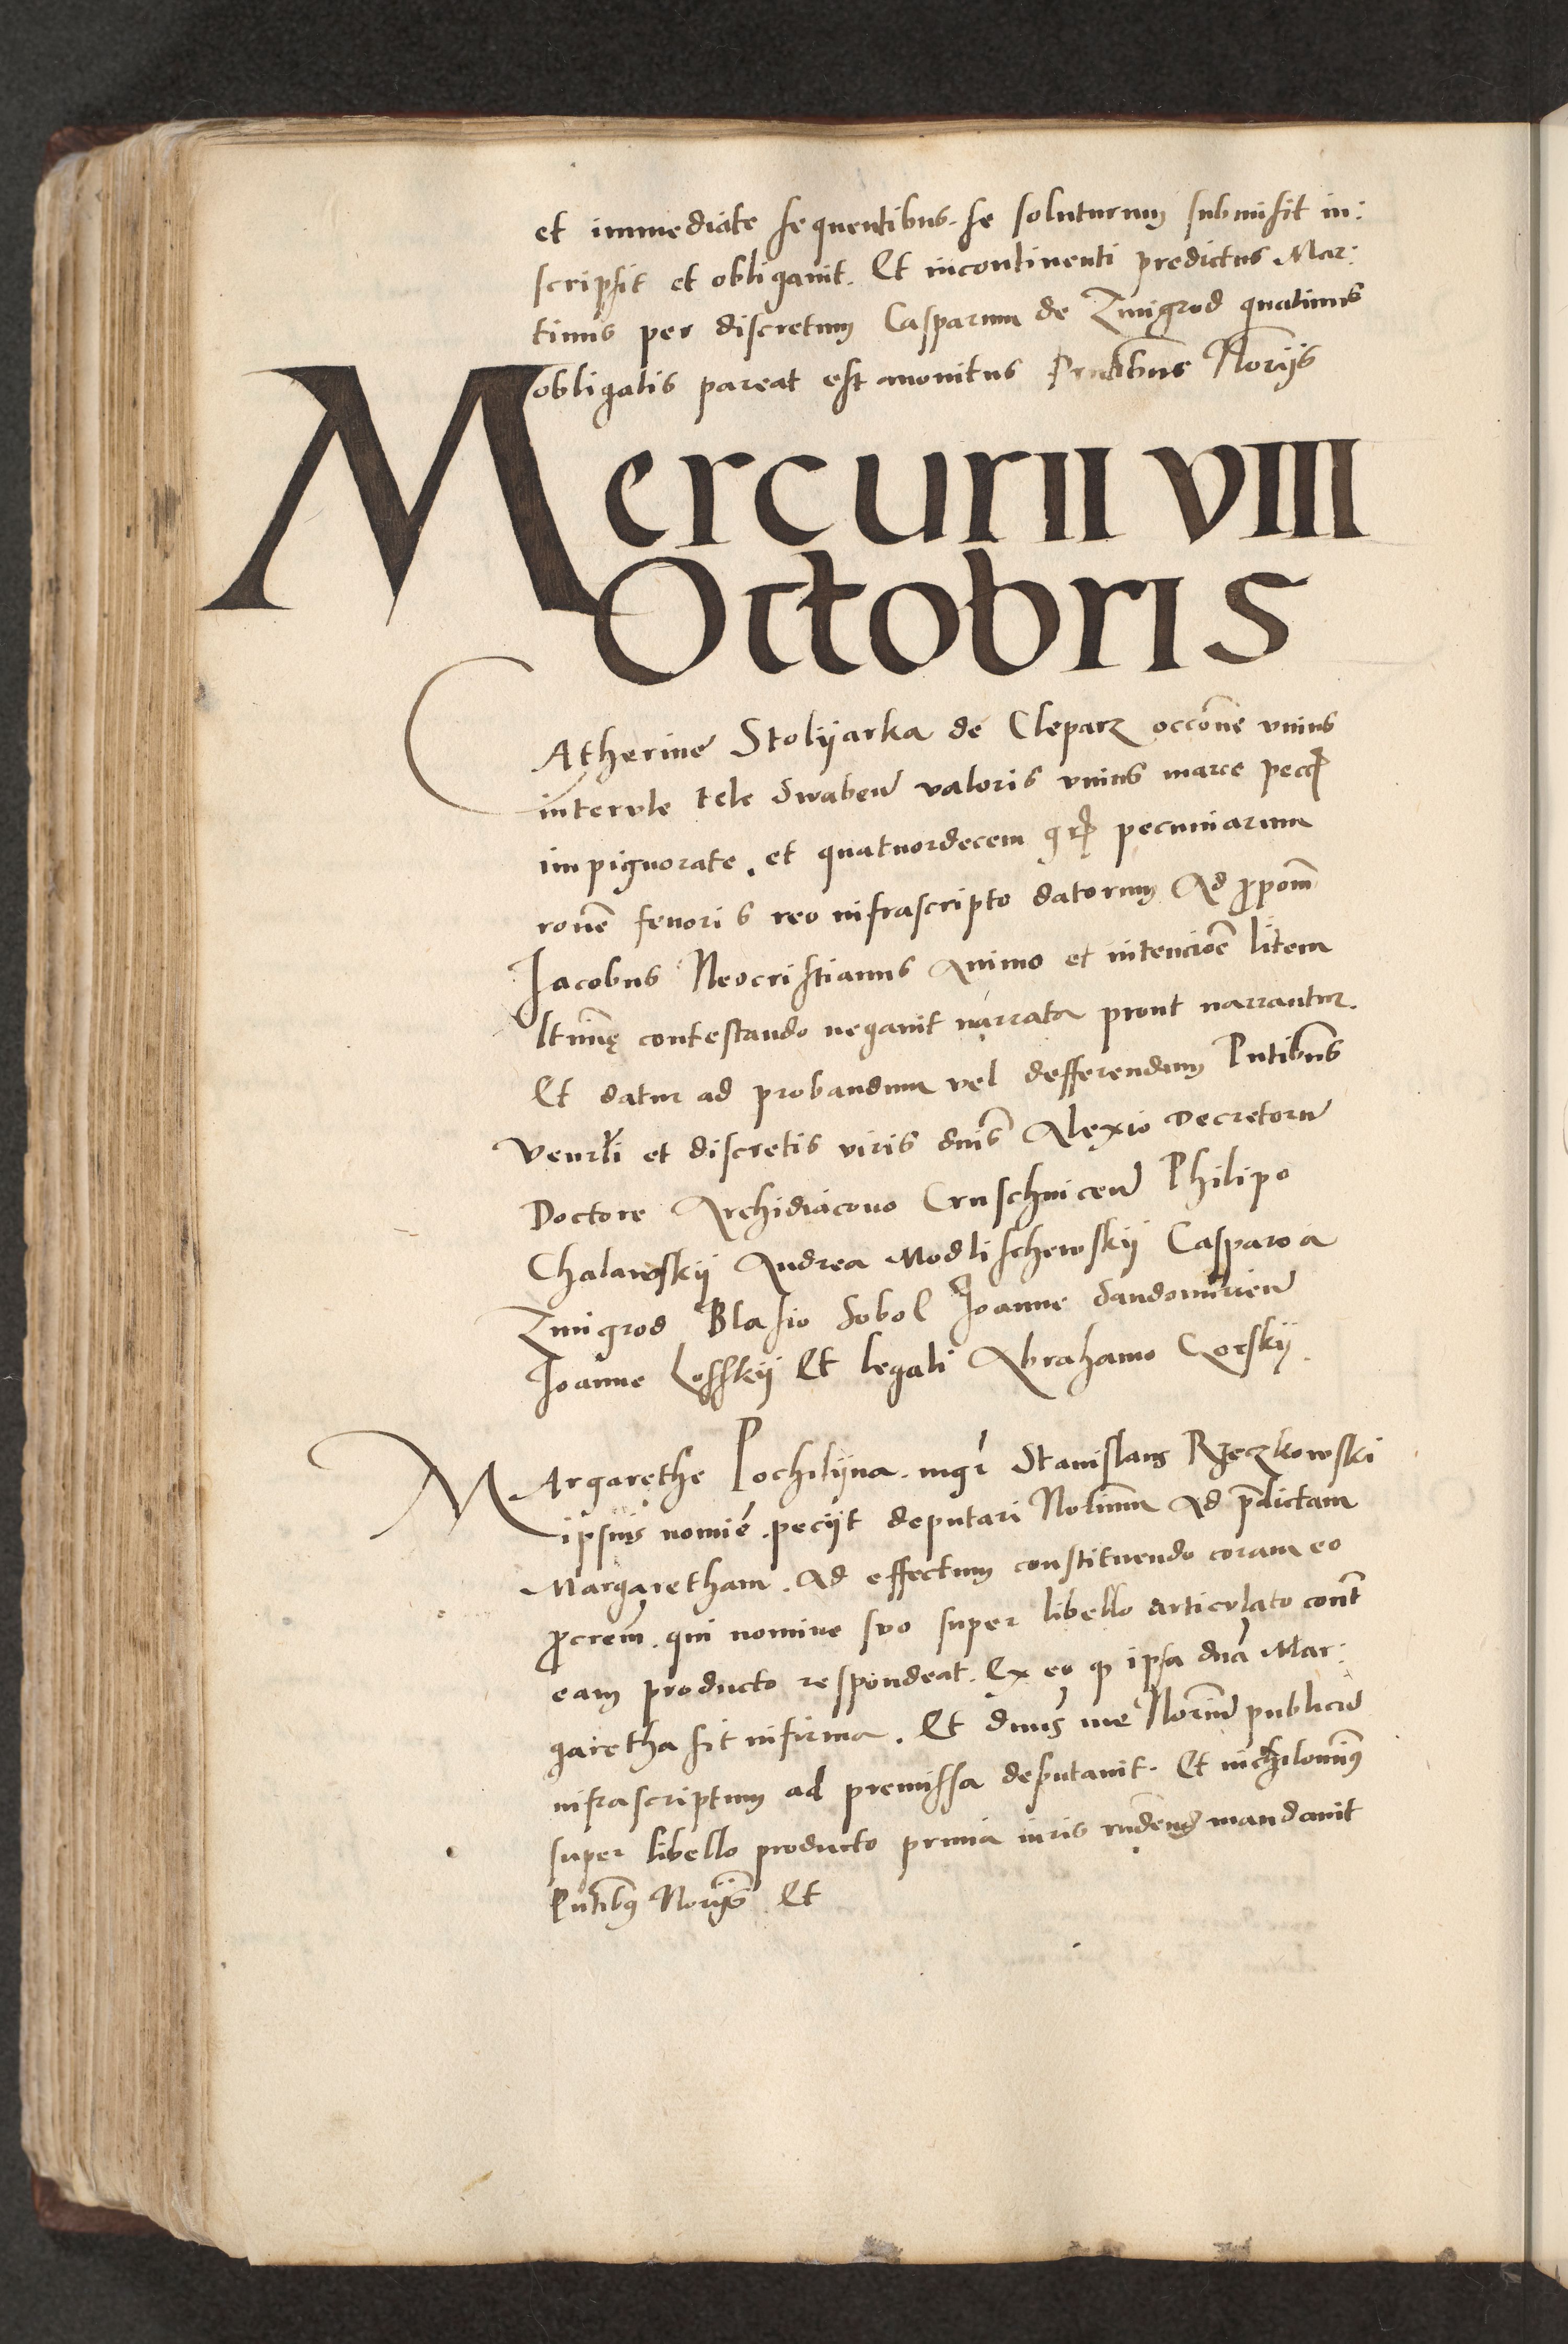 et immediate sequentibus. se soluturum submisit in:
scripsit et obligauit. Et incontinenti predictus Mar:
tinus per discretum Casparum de Zmigrod quatinus
obligatis pareat est monitus Pntibus Norijs
Mercurii VIII
Octobris
CAtherine Stolijarka de Cleparz occone vnius
intervle tele Swaben valoris vnius marce pecc
impignorate. et quatuordecem gr pecuniarum
rone fenoris reo infrascripto datorum Ad ppom
Jacobus Neocristianus Animo et intencioe litem
ltime contestando negauit narrata prout narrantur.
Et datur ad probandum vel defferendum Pntibus
Venrli et discretis viris dnis Alexio Decretoru
Doctore Archidiacono Cruschuicen Philipo
Chalawskij Andrea Modlischewskij Casparo a
Zmigrod Blasio Sobol Joanne Sandomirien
Joanne Losskij Et legali Abrahamo
MArgarethe Pochilijna. mgr Stanislaus Rzeczkowski
ipsius nomie. peciit deputari Notium Ad pdictam
Margaretham. Ad effectum constituendo coram eo
pcrem. qui nomine suo super libello articvlato cont
eam producto respondeat. Ex eo q ipsa dna Mar:
garetha sit infirma. Et dnus me Norium publicu
infrascriptum ad premissa deputauit. Et nichilominus
super libello producto prima iuris mandauit
Pntibus Norijs. Et